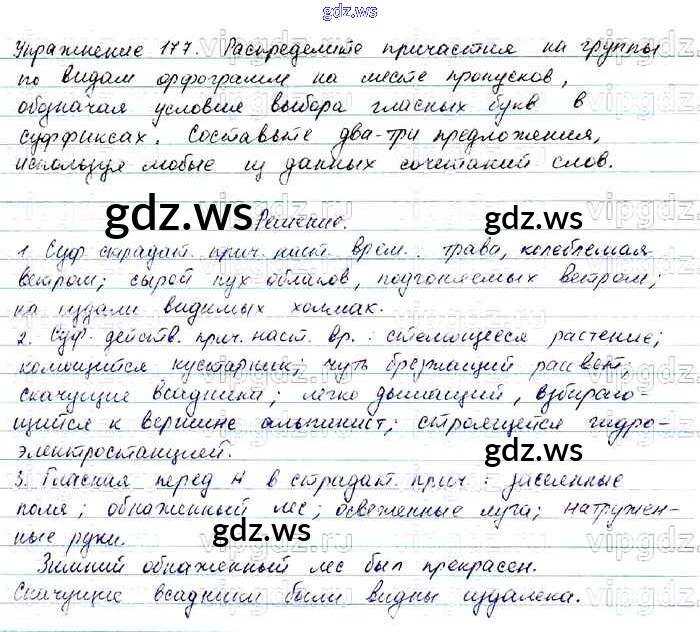 gdz.ws
Упражнение 177. Распределите причастия на группы
по видам орфограмм на месте пропусков,
обозначая условия выбора гласных букв в
суффиксах. Составьте два-три предложения,
используя любые из данных сочетаний слов.
gdz.ws Решение. gdz.ws
1. Суф. страдат. прич. наст. врем.: трава, колеблемая
ветром; сырой пух облаков, подгоняемых ветром;
на издали видимых холмах.
2. Суф. действ. прич. наст. вр.: стелющееся растение;
колющийся кустарник; чуть брезжащий рассвет;
скачущие всадники; легко дышащий, взбираю-
щийся к вершине альпинист; строящейся гидро-
электростанцией.
gdz.ws gdz.ws
3. Гласная перед Н в страдат. прич.: заселенные
поля; обнаженный лес; освеженные луга; натружен-
ные руки.
Зимний обнаженный лес был прекрасен.
Скачущие всадники были видны издалека.
gdz.ws gdz.ws